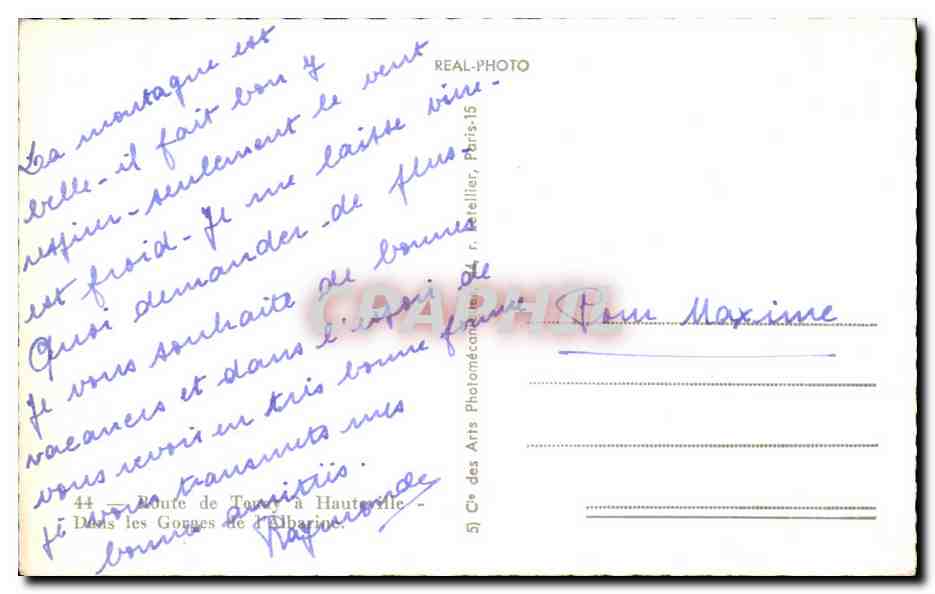 La montagne est
belle - il fait bon y
respirer - seulement le vent
est froid - Je me laisse vivre -
Quoi demander de plus -
Je vous souhaite de bonnes
vacances et dans l'espoir de
vous revoir en très bonne forme
je vous transmets mes
bonnes amitiés.
Raymonde
44 — Route de Tenay à Hauteville -
Dans les Gorges de l'Albarine.
REAL-PHOTO
5) Cie des Arts Photomécaniques, 44, r. Letellier, Paris-15
CARAPHIL
Pour Maxime